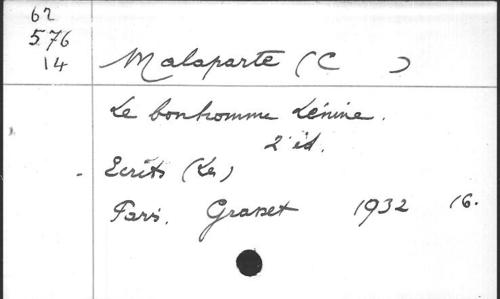 62
576
14
Malaparte (C )
Le bonhomme Lénine.
2 éd.
Ecrits (Les)
Paris. Grasset 1932 16.